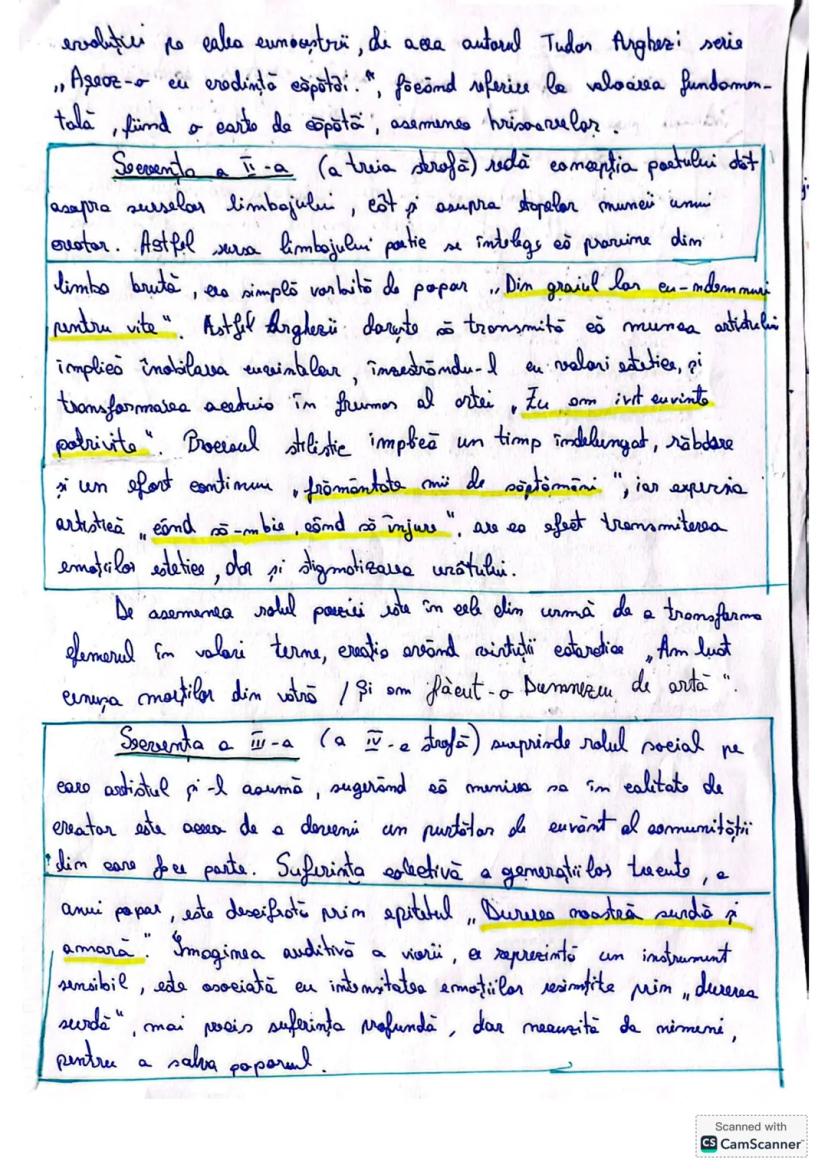 evoluției pe calea cunoașterii, de aceea autorul Tudor Arghezi scrie
„Așeaz-o cu credință căpătâi.", făcând referire la valoarea fundamen-
tală, fiind o carte de căpătâi, asemenea hrisoavelor.
Secvența a II-a (a treia strofă) redă concepția poetului cât
asupra surselor limbajului, cât și asupra etapelor muncii unui
creator. Astfel sursa limbajului poetic se înțelege că provine din
limba brută, cea simplă vorbită de popor „Din graiul lor cu-ndemnuri
pentru vite". Astfel Arghezi dorește să transmită că munca artistului
implică înnobilarea cuvintelor, înzestrându-l cu valori estetice, și
transformarea acestuia în frumos al artei „Eu am ivit cuvinte
potrivite". Procesul stilistic implică un timp îndelungat, răbdare
și un efort continuu „frământate mii de săptămâni", iar expresia
artistică „când să-mbie, când să înjure", are ca efect transmiterea
emoțiilor estetice, dar și stigmatizarea urâtului.
De asemenea rolul poeziei este în cele din urmă de a transforma
efemerul în valori terne, creația având virtuții catartice „Am luat
cenușa morților din vatră / Și am făcut-o Dumnezeu de artă".
Secvența a III-a (a IV-a strofă) surprinde rolul social pe
care artistul și-l asumă, sugerând că menirea sa în calitate de
creator este aceea de a deveni un purtător de cuvânt al comunității
din care face parte. Suferința colectivă a generațiilor trecute, a
unui popor, este descifrată prin epitetul „Durerea noastră surdă și
amară". Imaginea auditivă a viorii, ce reprezintă un instrument
sensibil, este asociată cu intensitatea emoțiilor resimțite prin „durerea
surdă", mai precis suferința profundă, dar neauzită de nimeni,
pentru a salva poporul.
Scanned with
CS CamScanner